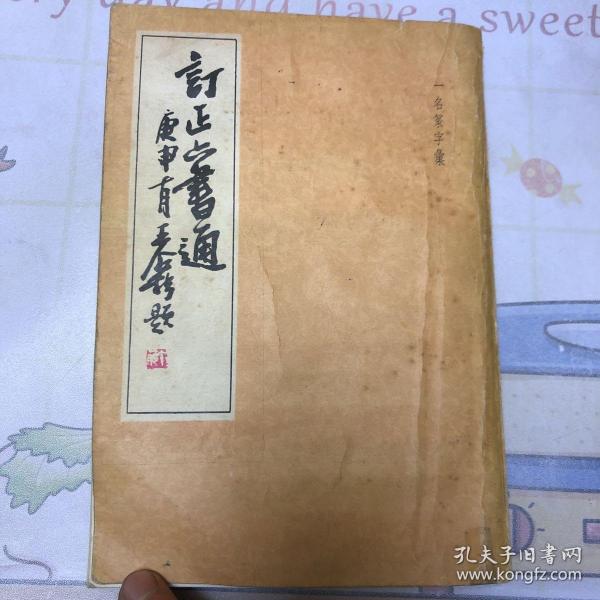 ery day and have a sweet
訂正六書通
庚申育王个簃題
一名篆字彙
孔夫子旧书网
www.kongfz.com